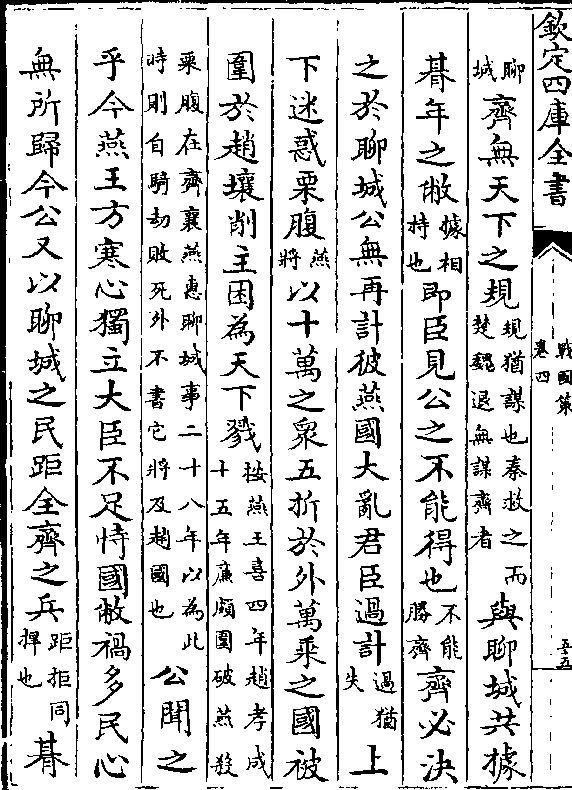 欽定四庫全書
戰國策
卷四
聊城齊無天下之規規猶謀也秦救之而楚魏退無謀齊者與聊城共據
朞年之敝據相持也即臣見公之不能得也不能勝齊齊必決
之於聊城公無再計彼燕國大亂君臣過計過猶失上
下迷惑栗腹燕將以十萬之衆五折於外萬乘之國被
圍於趙壤削主困為天下戮按燕王喜四年趙孝成十五年廉頗圍破燕殺
栗腹在齊襄燕惠聊城事二十八年以為此時則自騎劫敗死外不書它將及趙國也公聞之
乎今燕王方寒心獨立大臣不足恃國敝禍多民心
無所歸今公又以聊城之民距全齊之兵距拒同捍也朞